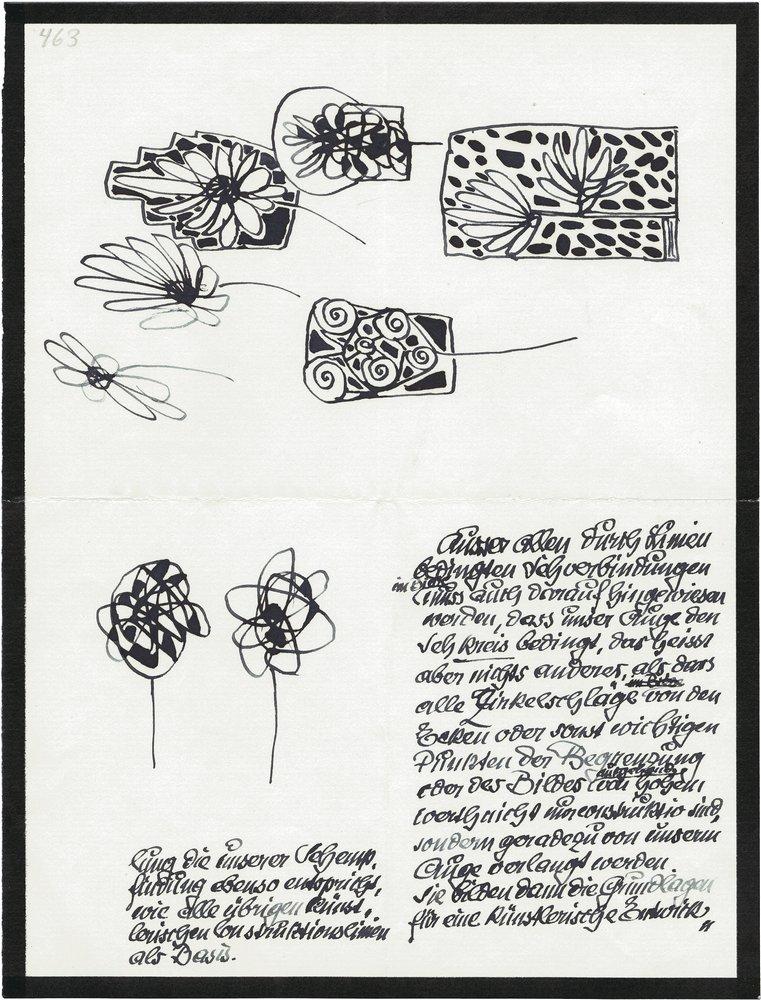 463
Ausser allen durch Linien
bedingten Sehverbindungen
muss auch darauf hingewiesen
werden, dass unser Auge den
Sehkreis bedingt, das heisst
aber nichts anderes, als dass
alle Zirkelschläge von den
Ecken oder sonst wichtigen
Punkten der Begrenzung
oder des Bildes von hohem
werth nicht nur constructiv sind,
sondern geradezu von unserm
Auge verlangt werden.
Sie bilden dann die Grundlagen
für eine künstlerische Entwick„
lung die unserer Sehemp,
findung ebenso entspricht,
wie alle übrigen künst,
lerischen Constructionslinien
als Basis.